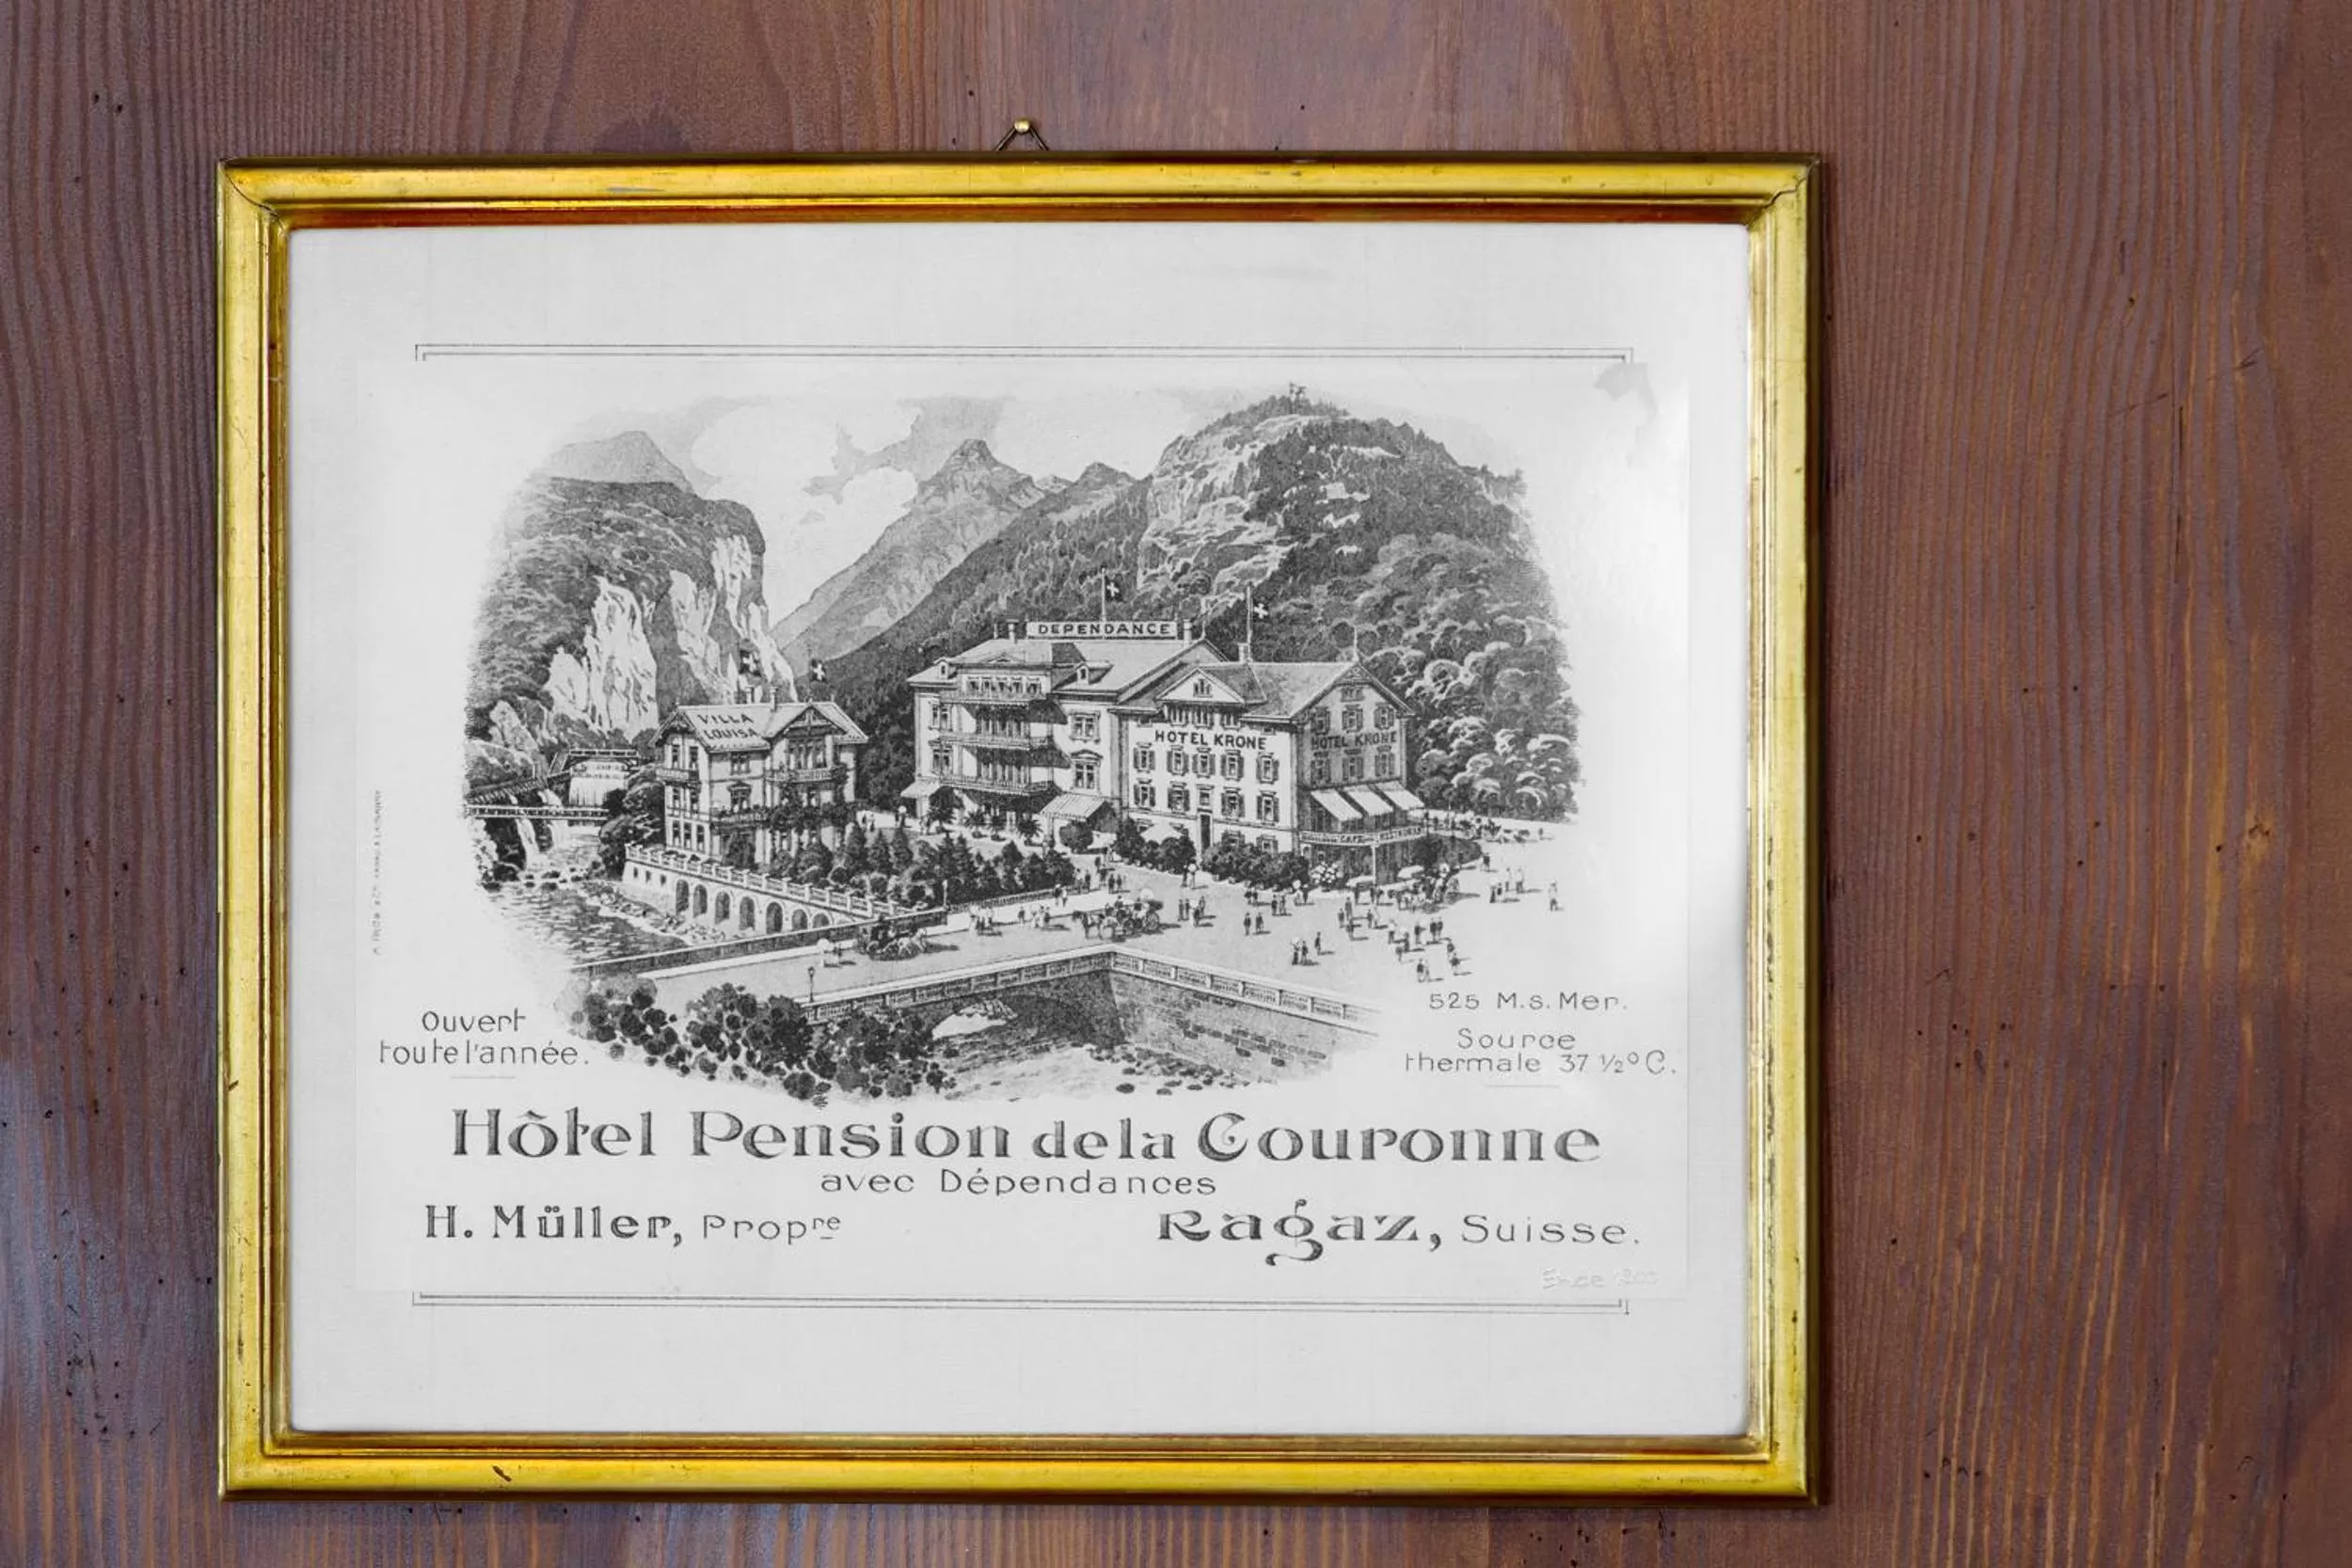 DEPENDANCE
VILLA
LOUISA
HOTEL KRONE
HOTEL KRONE
CAFE
525 M.s.Mer.
Ouvert
toute l'année.
Source
thermale 37 ½° C.
Hôtel Pension de la Couronne
avec Dépendances
H. Müller, Propre
Ragaz, Suisse.